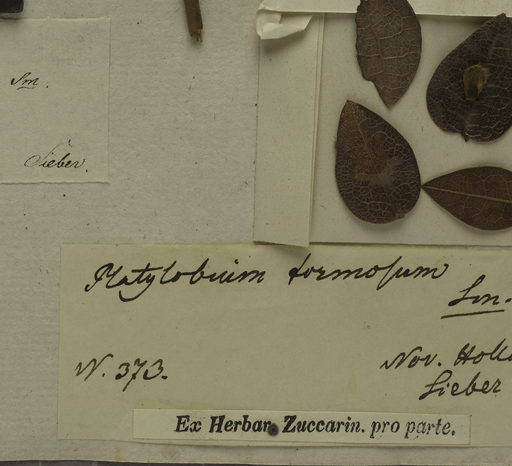 Sm.
Sieber.
Platylobium formosum
Sm.
N. 373.
Nov. Holl
Sieber
Ex Herbar. Zuccarin. pro parte.